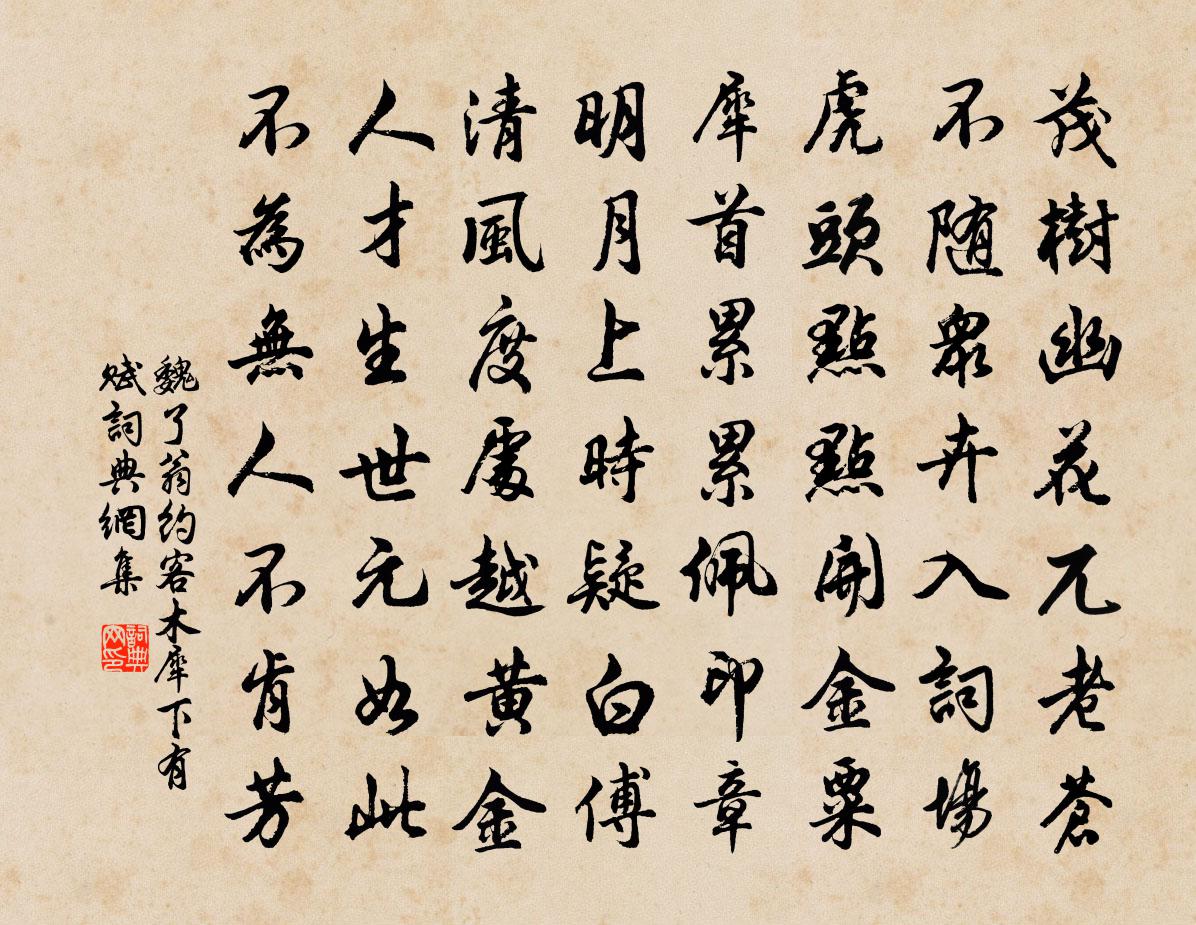 茂樹幽花兀老蒼
不随眾卉入詞場
虎頭點點開金粟
犀首累累佩印章
明月上時疑白傅
清風度處越黃金
人才生世元如此
不為無人不肯芳
魏了翁約客木犀下有
賦詞典網集
詞典網印